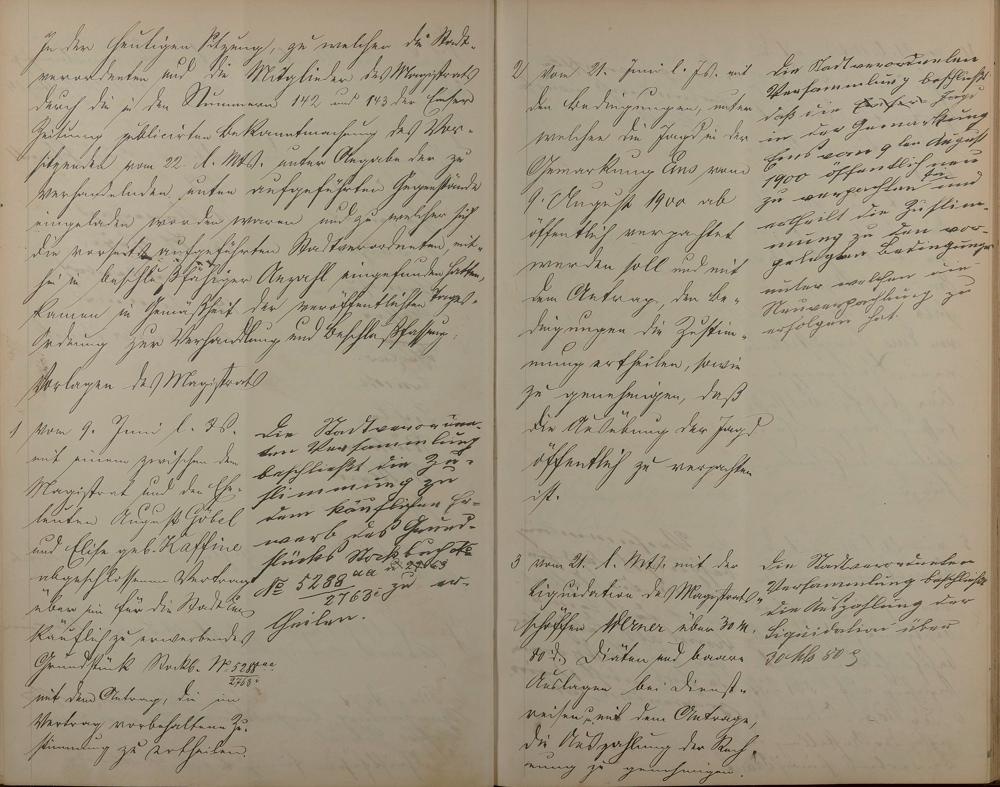 In der heutigen Sitzung, zu welcher die Stadt-
verordneten und die Mitglieder des Magistrats
durch die in den Nummern 142 und 143 der Emser
Zeitung publicirten Bekanntmachung des Vor-
sitzenden vom 22. l. Mts. unter Angabe der zu
verhandelnden, unten aufgeführten Gegenstände
eingeladen worden waren und zu welcher sich
die vorseits aufgeführten Stadtverordneten mit-
hin in beschlußfähiger Anzahl eingefunden hatten,
kamen in Gemäßheit der veröffentlichten Tages-
Ordnung zur Verhandlung und Beschlußfassung:
Vorlagen des Magistrats
1 vom 9. Juni l. Js.
mit einem zwischen dem
Magistrat und den Ehe-
leuten August Göbel
und Elise geb. Kaffine
abgeschlossenen Vertrag
über ein für die Stadt Ems
käuflich zu erwerbendes
Grundstück Stockb. No 5288 aa
2763
mit dem Antrag, die im
Vertrag vorbehaltene Zu-
stimmung zu ertheilen.
Die Stadtverordne-
ten Versammlung
beschließt die Zu-
stimmung zu
dem käuflichen Er-
werb des Grund-
stücks Stockbuch
No 5288 aa u 2763
2763 zu er-
theilen.
2 vom 21. Juni l. Js. mit
den Bedingungen, unter
welchen die Jagd in der
Gemarkung Ems vom
9. August 1900 ab
öffentlich verpachtet
werden soll und mit
dem Antrag, den Be-
dingungen die Zustim-
mung ertheilen, sowie
zu genehmigen, daß
die Ausübung der Jagd
öffentlich zu verpachten
ist.
Die Stadtverordneten
Versammlung beschließt
daß die Jagd
in der Gemarkung
Ems vom 9ten August
1900 öffentlich neu
zu verpachten und
ertheilt die Zustim-
mung zu den vor-
gelegten Bedingungen
unter welchen die
Neuverpachtung zu
erfolgen hat.
3 vom 21. l. Mts. mit der
Liquidation des Magistrats-
schöffen Werner über 30 M.
80 d. Diäten und baare
Auslagen bei Dienst-
reisen, mit dem Antrage,
die Auszahlung der Rech-
nung zu genehmigen.
Die Stadtverordneten
Versammlung beschließt
die Auszahlung der
Liquidation über
30 Mk 80 d